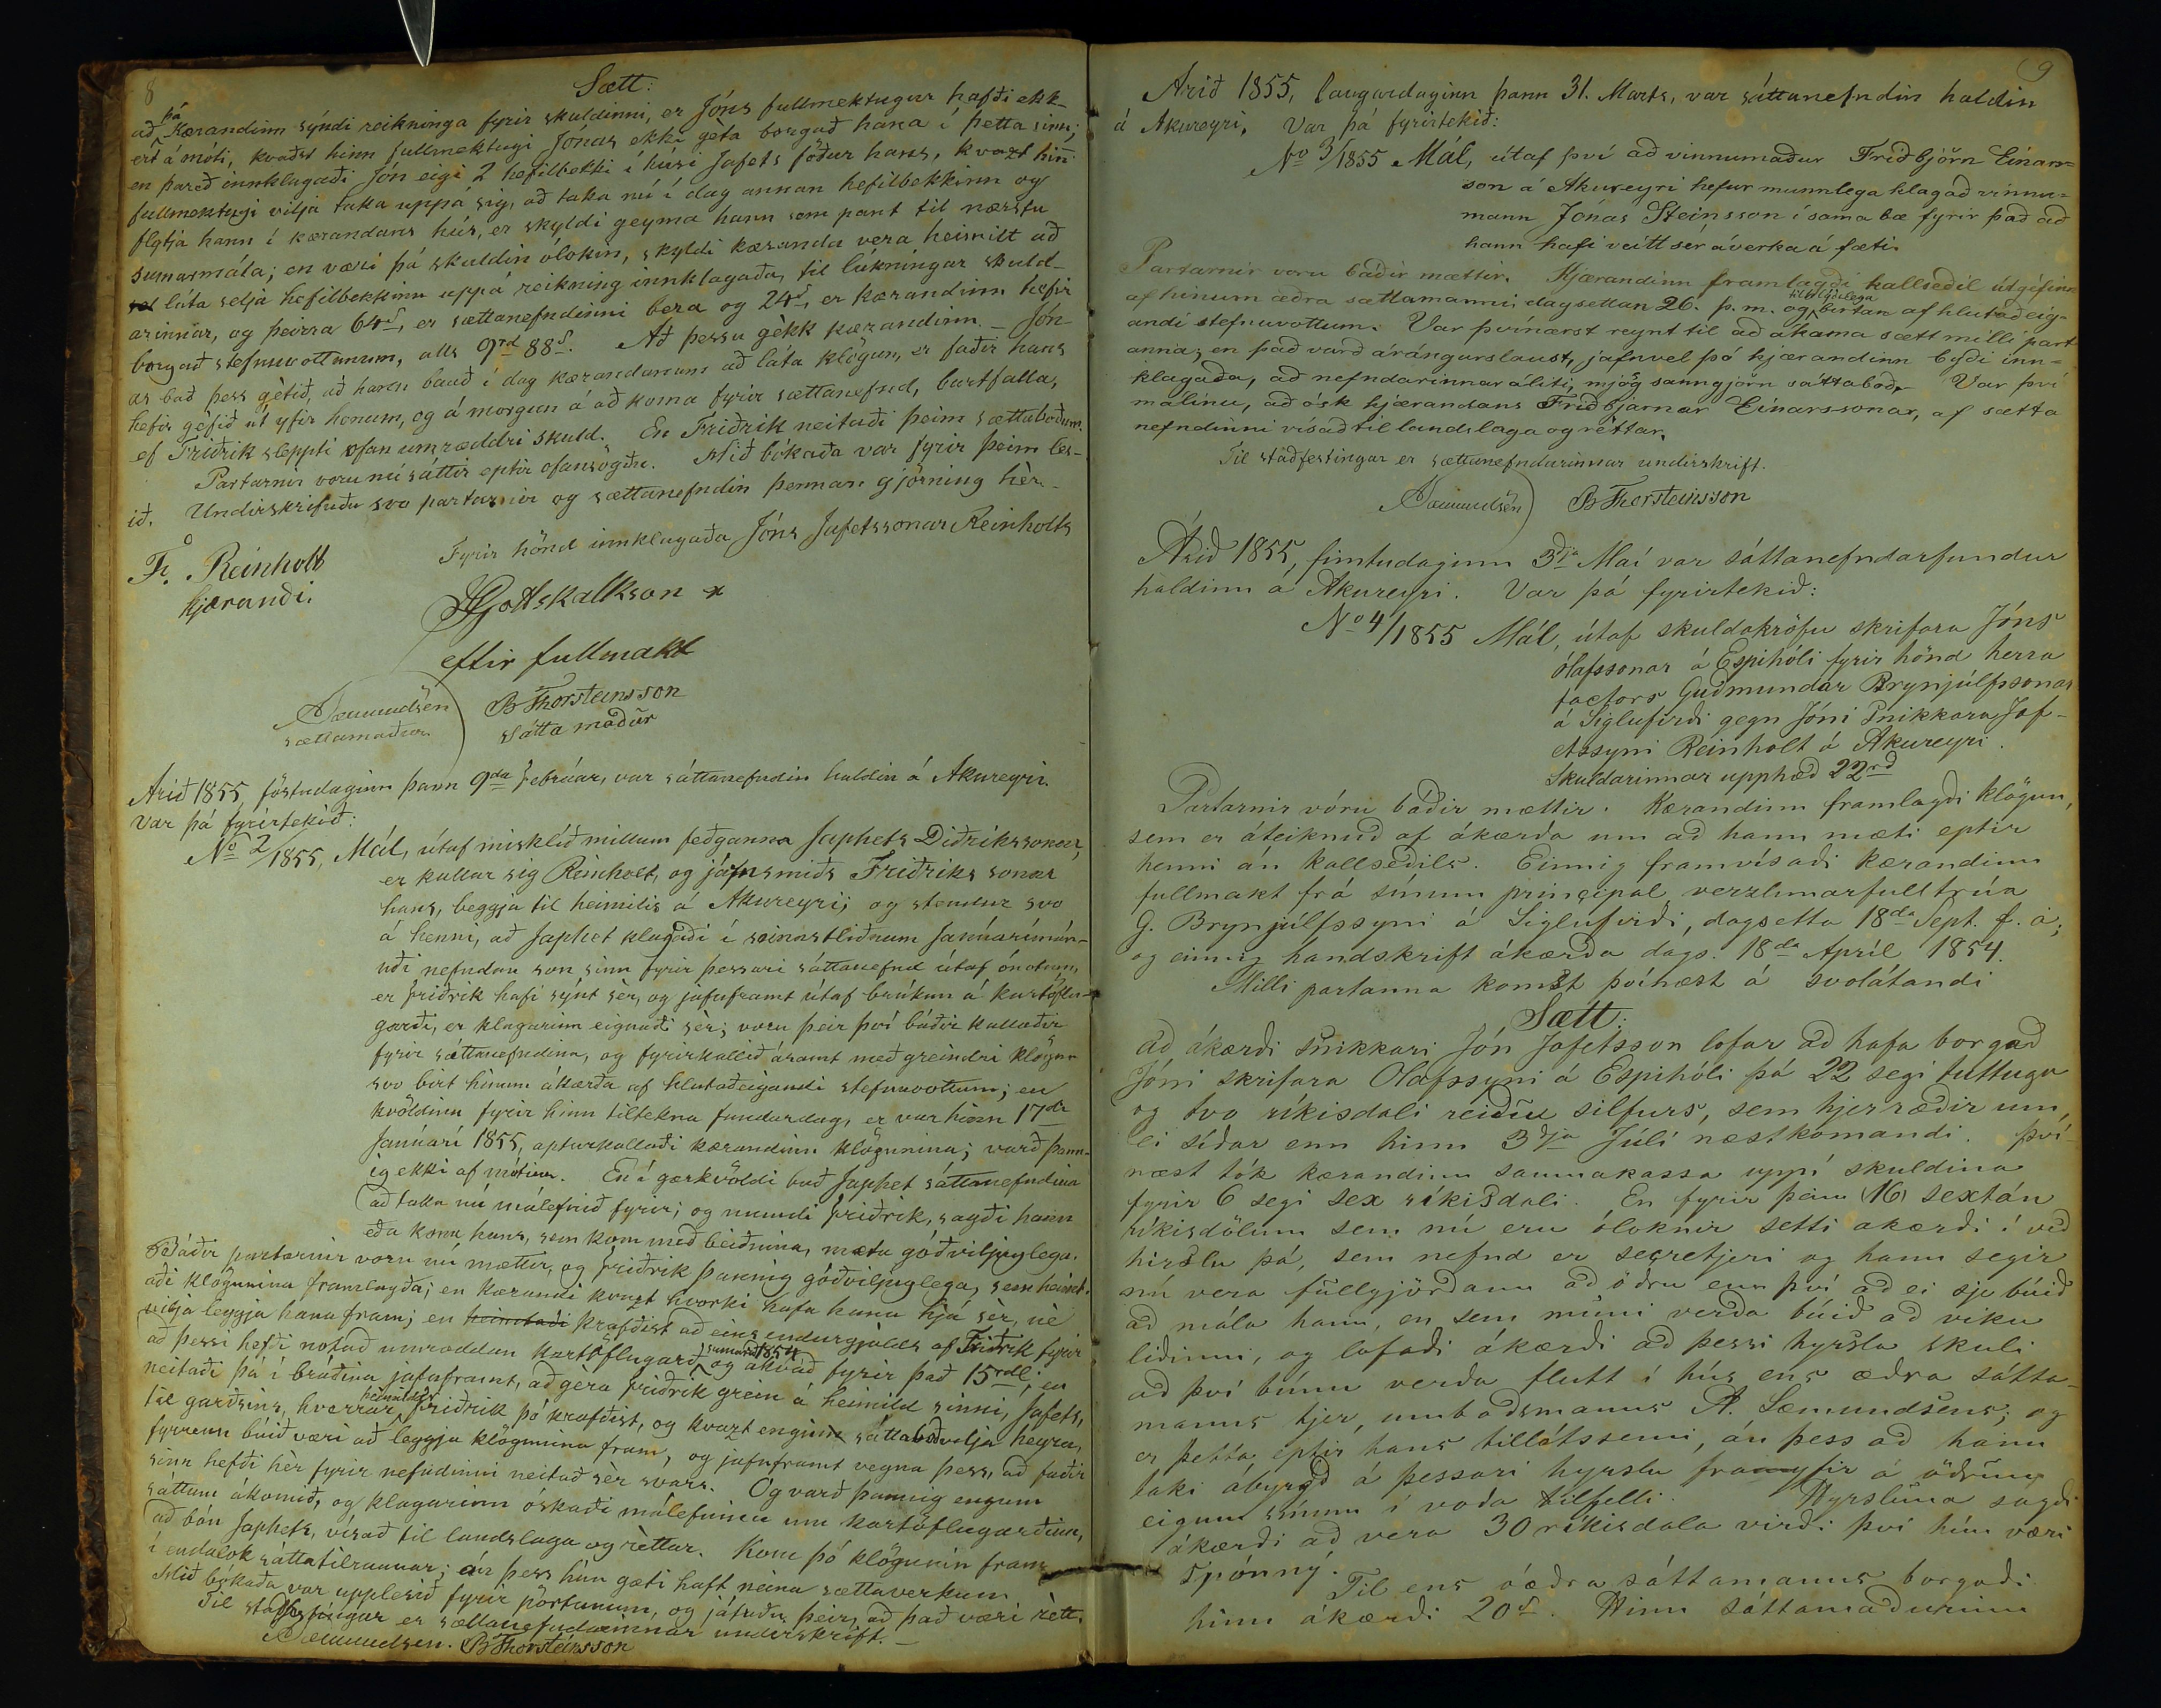 8
Sætt:
að þá Kærandinn sýndi reikninga fyrir skuldinni, er Jóns fullmektugur hafði ekk-
ert á móti, kvaðst hinn fullmektugi Jónas ekki géta borgað hana í þetta sinn;
en þareð innklagaði Jón eigi 2 hefilbekki í húsi Jafets föður hans, kvazt hinn
fullmektugi vilja taka uppá sig, að taka nú í dag annan hefilbekkinn og
flytja hann í kærandans hús, er skyldi geyma hann som pant til næstu
sumarmála; en væri þá skuldin ólokin, skyldi kæranda vera heimilt að
láta selja hefilbekkinn uppá reikning innklagaða, til lúkningar skuld-
arinnar, og þeirra 64s, er sættanefndinni bera og 24s, er kærandinn hefir
borgað stefnuvottunum, alls 9rd 88s. Að þessu gékk kærandinn. - Jón-
as bað þess gétið, að hann bauð í dag kærandanum að láta klögun, er faðir hans
hefir géfið út yfir honum, og á morgun á að koma fyrir sættanefnd, burtfalla,
ef Friðrik sleppti ofan umræddri skuld. En Friðrik neitaði þeim sættaboðum.
Partarnir voru nú sáttir eptir ofansögðu. Hið bókaða var fyrir þeim les-
ið. Undirskrifuðu svo partarnir og sættanefndin þennan gjörning hèr.
Fyrir hönd innklagaða Jóns Jafetssonar Reinholts
Fr. Reinholt
kjærandi.
JGottskalkson
eftir fullmakt
ASæmundsen
sættamaður
B Thorsteinsson
sátta maður
Árið 1855, föstudaginn þann 9da Febrúar, var sáttanefndin haldin á Akureyri.
Var þá fyrirtekið:
No 2/1855, Mál, útaf misklíð millum feðganna Japhets Diðrikssonar,
er kallar sig Reinholt, og járnsmiðs Friðriks sonar
hans, beggja til heimilis á Akureyri; og stendur svo
á henni, að Japhet klagaði í seinastliðnum Janúarímán-
uði nefndan son sinn fyrir þessari sáttanefnd útaf ónotum,
er Friðrik hafi sýnt sèr, og jafnframt útaf brúkun á kartöflu-
garði, er klagarinn eignaði sèr; voru þeir því báðir kallaðir
fyrir sáttanefndina, og fyrirkallið ásamt með greindri klögun
svo birt hinum ákærða af hlutaðeigandi stefnuvottum; en
kvöldinu fyrir hinn tiltekna fundardag, er var hinn 17da
Janúarí 1855, apturkallaði kærandinn klögunina; varð þann-
ig ekki af mótinu. En í gærkvöldi bað Japhet sáttanefndina
að taka nú málefnið fyrir; og mundi Friðrik, sagði hann
eða kona hans, sem kom með beiðnina, mæta góðviljuglega.
Báðir partarnir voru nú mættir, og Friðrik þannig góðviljuglega, sem heimt-
aði klögunina framlagða; en kærandi kvazt hvorki hafa hana hjá sèr, nè
vilja leggja hana fram; en heimtaði krafðist að eins endurgjalds af Friðrik fyrir
að þessi hefði notað umræddan kartöflugarð sumarið 1854 og ákvað fyrir það 15rdl; en
neitaði þá í bráðina jafnframt, að gera Friðrik grein á heimild sinni, Jafets,
til garðsins, hverrar heimildar Friðrik þó krafðist, og kvazt engin sáttaboð vilja heyra,
fyrrenn búið væri að leggja klögunina fram, og jafnframt vegna þess, að faðir
sinn hefði hèr fyrir nefndinni neitað sèr svars. Og varð þannig engum
sáttum ákomið, og klagarinn óskaði málefninu um kartöflugarðinn,
að bón Japhets, vísað til landslaga og rèttar. Kom þó klögunin fram
í endalok sáttatilraunar; án þess hún gæti haft neina sættaverkun
Hið bókaða var upplesið fyrir pörtunum, og játuðu þeir, að það væri rètt.
Til staðfestingar er sættanefndarinnar undirskrift. -
ASæmundsen. B Thorsteinsson
9
Árið 1855, laugardaginn þann 31. Marts, var sáttanefndin haldin
á Akureyri. Var þá fyrirtekið:
No 3/1855 Mál, útaf því að vinnumaður Friðbjörn Einars-
son á Akureyri hefur munnlega klagað vinnu-
mann Jónas Steinsson í sama bæ fyrir það að
hann hafi veitt sér áverka á fæti.
Partarnir voru báðir mættir. Kjærandinn framlagði kallseðil útgéfinn
af hinum æðra sættamanni, dagsettan 26. þ. m. og tilhlýðilega birtan af hlutaðeig-
andi stefnuvottum. Var þvínærst reynt til að ákoma sætt milli part-
anna; en það varð árángurslaust, jafnvel þó kjærandinn byði inn-
klagaða, að nefndarinnar áliti, mjög sanngjörn sáttaboð. - Var því
málinu, að ósk kjærandans Friðbjarnar Einarssonar, af sætta
nefndinni vísað til landslaga og réttar.
Til staðfestingar er sættanefndarinnar undirskrift.
ASæmundsen B Thorsteinsson
Árið 1855, fimtudaginn 3dja Maí var sáttanefndarfundur
haldinn á Akureyri. Var þá fyrirtekið:
No 4/1855 Mál, útaf skuldakröfu skrifara Jóns
Ólafssonar á Espihóli fyrir hönd herra
factors Guðmundar Brynjúlfssonar
á Siglufirði gegn Jóni Snikkara Jaf-
etssyni Reinholt á Akureyri.
Skuldarinnar upphæð 22rd
Partarnir vóru báðir mættir. Kærandinn framlagði klögun,
sem er áteiknuð af ákærða um að hann mæti eptir
henni án kallseðils. Einnig framvísaði kærandinn
fullmakt frá sínum principal verzlunarfulltrúa
G. Brynjúlfssyni á Siglufirði, dagsetta 18da Sept. f. á;
og einnig handskrift ákærða dags. 18da Apríl 1854.
Milli partanna komst þvínæst á svolátandi
Sætt:
að ákærði snikkari Jón Jafetsson lofar að hafa borgað
Jóni skrifara Olafssyni á Espihóli þá 22 segi tuttugu
og tvo ríkisdali reiðu silfurs, sem hjer ræðir um,
ei síðar enn hinn 3dja Júlí næstkomandi. Því-
næst tók kærandinn saumakassa uppí skuldina
fyrir 6 segi sex ríkisdali. En fyrir þeim (16) sextán
ríkisdölum sem nú eru óloknir setti ákærði í veð
hirslu þá, sem nefnd er secretjeri og hann segir
nú vera fullgjörðann að öðru enn því að ei sje búið
að mála hann, en sem muni verða búið að viku
liðinni, og lofaði ákærði að þessi hyrsla skuli
að því búnu verða flutt í hús ens æðra sátta-
manns hjer, umboðsmanns A. Sæmundsens; og
er þetta eptir hans tillátssemi, án þess að hann
taki ábyrgð á þessari hyrslu framyfir á öðrum
eigum sínum í voða tilfelli. Hyrsluna sagði
ákærði að vera 30 ríkisdala virði því hún væri
spónný.
Til ens óæðra sáttamanns borgaði
hinn ákærði 20s. Hinn sáttamaðurinn